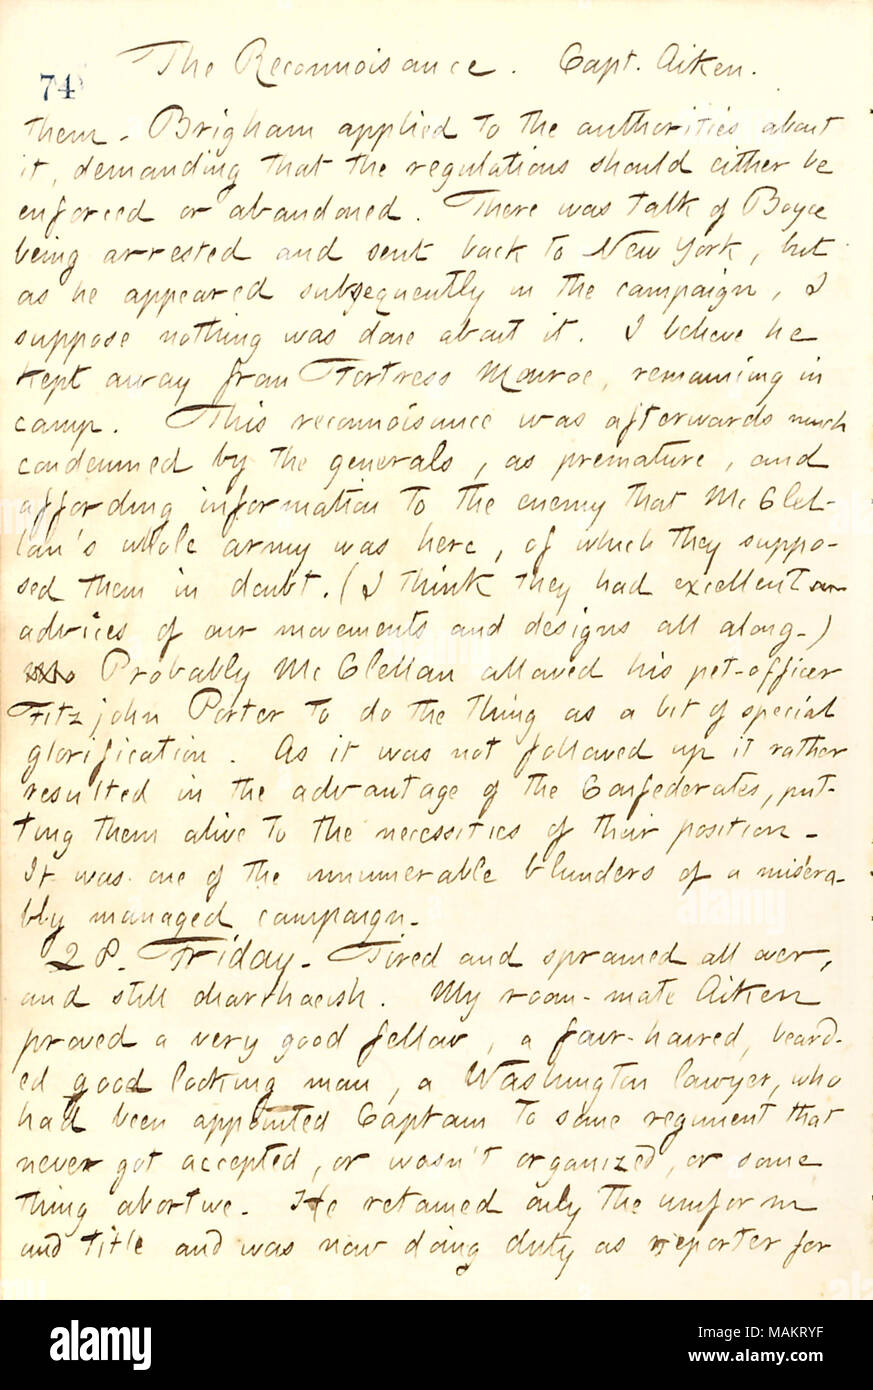 74
The Reconnoisance. Capt. Aiken.
them. Brigham applied to the authorities about
it, demanding that the regulations should either be
enforced or abandoned. There was talk of Boyce
being arrested and sent back to New York, but
as he appeared subsequently in the campaign, I
suppose nothing was done about it. I believe he
kept away from Fortress Monroe, remaining in
camp. This reconnoisance was afterwards much
condemned by the generals, as premature, and
affording information to the enemy that Mc Clel-
lan's whole army was here, of which they suppo-
sed them in doubt. (I think they had excellent
advices of our movements and designs all along.)
Probably Mc Clellan allowed his pet-officer
Fitz john Porter to do the thing as a bit of special
glorification. As it was not followed up it rather
resulted in the advantage of the Confederates, put-
ting them alive to the necessities of their position.
It was one of the innumerable blunders of a misera-
bly managed campaign.
28. Friday. Tired and sprained all over,
and still diarrhaeish. My room-mate Aiken
proved a very good fellow, a fair-haired, beard-
ed good looking man, a Washington lawyer, who
had been appointed Captain to some regiment that
never got accepted, or wasn't organized, or some
thing abortive. He retained only the uniform
and title and was now doing duty as reporter for
alamy
Image ID: MAKRYF
www.alamy.com